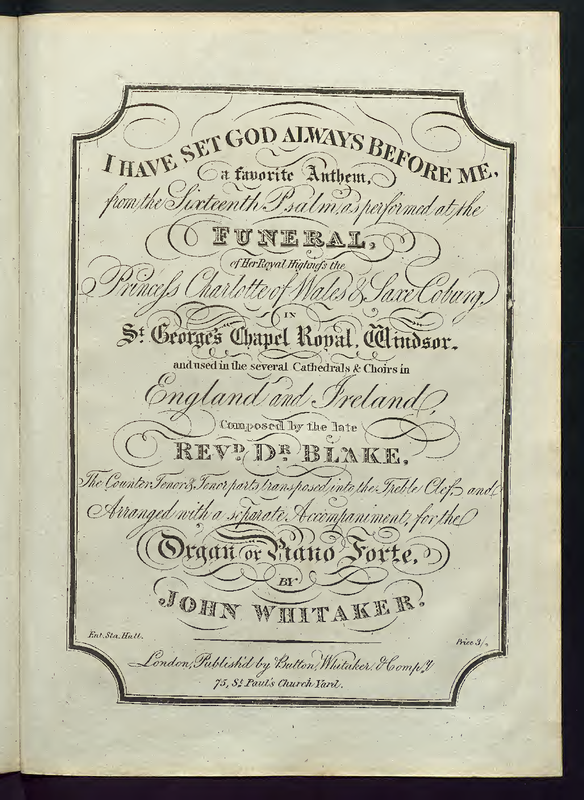 I HAVE SET GOD ALWAYS BEFORE ME,
a favorite Anthem,
from the Sixteenth Psalm, as performed at the
FUNERAL,
of Her Royal Highneſs the
Princeſs Charlotte of Wales & Saxe Coburg
IN
St. George's Chapel Royal, Windsor.
and used in the several Cathedrals & Choirs in
England and Ireland,
Composed by the late
REVD. DR. BLAKE,
The Counter Tenor & Tenor parts transposed into the Treble Clef, and
Arranged with a separate Accompaniment, for the
Organ or Piano Forte,
BY
JOHN WHITAKER.
Ent. Sta. Hall.
Price 3/-
London, Publish'd by Button, Whitaker, & Compy.
75, St. Paul's Church Yard.